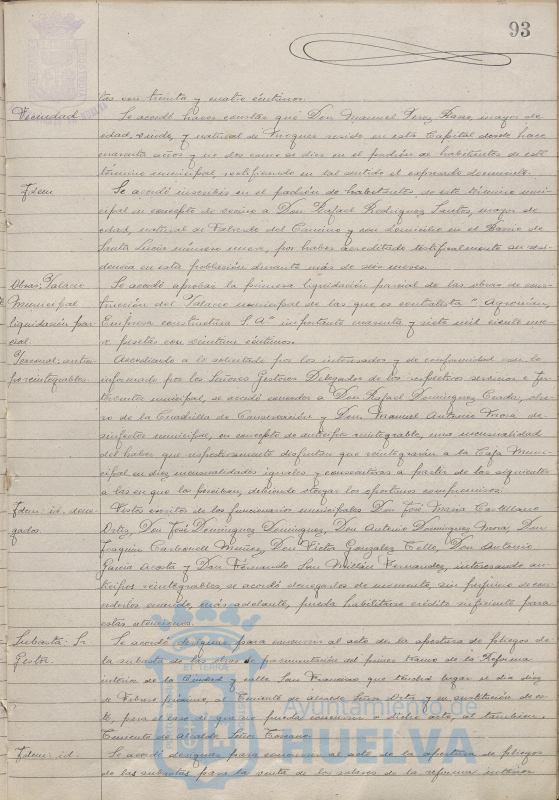 93
tas con treinta y cuatro céntimos.
Vecindad Se acordó hacer constar que Don Manuel Pérez mayor de
edad, viudo, y natural de reside en esta Capital desde hace
cuarenta años y no dos como se dice en el padrón de habitantes de este
término municipal, rectificando en tal sentido el expresado documento.
Idem Se acordó inscribir en el padrón de habitantes de este término muni-
cipal en concepto de vecino a Don Rafael Rodríguez Santos, mayor de
edad, natural de Valverde del Camino y con domicilio en el Barrio de
Santa Lucía número nueve, por haber acreditado testificalmente su resi-
dencia en esta población durante más de seis meses.
Obras: Palacio Se acordó aprobar la primera liquidación parcial de las obras de cons-
Municipal trucción del Palacio municipal de las que es contratista "Agromán,
liquidación par- Empresa constructora S.A" importante cuarenta y siete mil ciento nue-
cial. ve pesetas con veintiun céntimos.
Personal: antici- Accediendo a lo solicitado por los interesados y de conformidad con lo
pos reintegrables. informado por los Señores Gestores Delegados de los respectivos servicios e In-
terventor municipal, se acordó conceder a Don Rafael Domínguez obre-
ro de la Cuadrilla de Conservación y Don Manuel Antonio de-
sinfector municipal, en concepto de anticipo reintegrable, una mensualidad
del haber que respectivamente disfrutan que reintegrarán a la Caja Muni-
cipal en diez mensualidades iguales y consecutivas a partir de la siguiente
a la en que la perciban, debiendo otorgar los oportunos compromisos.
Idem: id. dene- Vistos escritos de los funcionarios municipales Don José María Castellano
gados. Ortiz, Don José Domínguez Domínguez, Don Antonio Domínguez Mora, Don
Joaquín Carbonell Muñoz, Don Víctor González Tello, Don Antonio
García Acosta y Don Fernando San Millán Fernández, interesando an-
ticipos reintegrables, se acordó denegarlos de momento, sin perjuicio de con-
cederlos cuando, más adelante, pueda habilitarse crédito suficiente para
estas atenciones.
Subasta: Sr. Se acordó designar para concurrir al acto de la apertura de pliegos de
Gestor. la subasta de las obras de pavimentación del primer tramo de la Reforma
interior de la Ciudad y calle San Francisco que tendrá lugar el día diez
de Febrero próximo, al Teniente de alcalde Señor Ortiz y en sustitución de es-
te, para el caso de que no pueda concurrir a dicho acto, al también
Teniente de Alcalde Señor Toscano.
Idem: id. Se acordó designar para concurrir al acto de la apertura de pliegos
de las subastas para la venta de los solares de la reforma interior
Ayuntamiento de
HUELVA